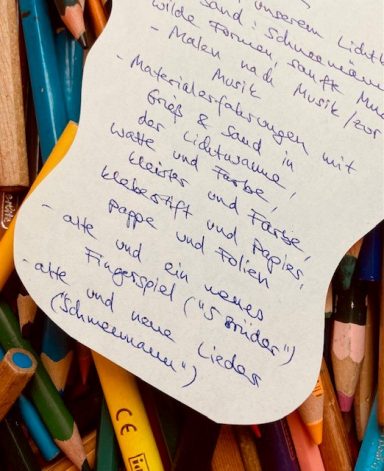 unserem Licht
Sand: Schneemänn
wilde Formen, sanfte
- Malen nach Musik / zur
Musik
- Materialerfahrungen mit
Grieß & Sand in
der Lichtwanne,
Watte und Farbe,
Kleister und Farbe,
Klebestift und Papier,
Pappe und Folien
- alte und ein neues
Fingerspiel ("5 Brüder")
- alte und neue Lieder
("Schneemann")
CE